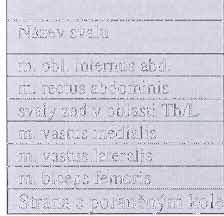 Název svalu
m. obl. internus abd.
m. rectus abdominis
svaly zad v oblasti Th/L
m. vastus medialis
m. vastus lateralis
m. biceps femoris
Strana s poraněným kole